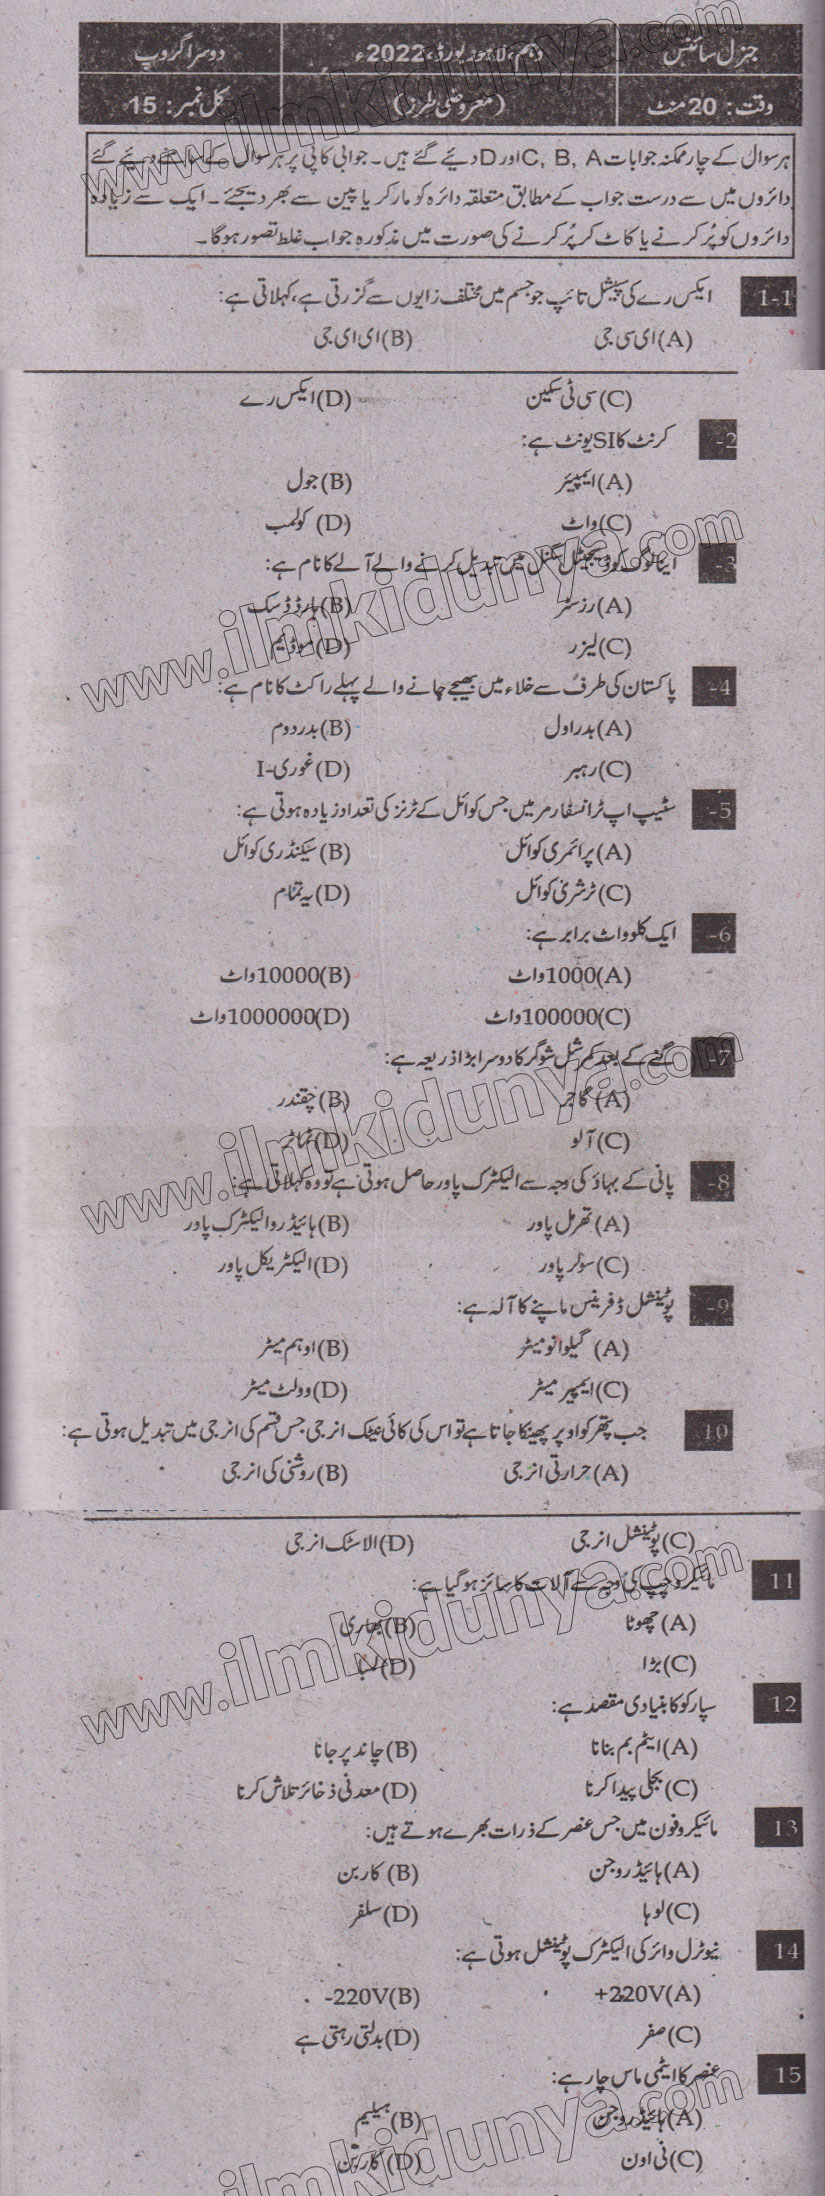 جنرل سائنس دہم، لاہور بورڈ، 2022ء دوسرا گروپ
وقت: 20 منٹ (معروضی طرز) کل نمبر: 15
ہر سوال کے چار ممکنہ جوابات C, B, A اور D دیئے گئے ہیں۔ جوابی کاپی پر ہر سوال کے سامنے دیئے گئے
دائروں میں سے درست جواب کے مطابق متعلقہ دائرہ کو مارکر یا پین سے بھر دیجئے۔ ایک سے زیادہ
دائروں کو پُر کرنے یا کاٹ کر پُر کرنے کی صورت میں مذکورہ جواب غلط تصور ہوگا۔
1-1 ایکس رے کی سپیشل ٹائپ جو جسم میں مختلف زایوں سے گزرتی ہے، کہلاتی ہے:
(A) ای سی جی (B) ای ای جی
(C) سی ٹی سکین (D) ایکس رے
2- کرنٹ کا SI یونٹ ہے:
(A) ایمپیئر (B) جول
(C) واٹ (D) کولمب
3- اینالوگ کو ڈیجیٹل سگنل میں تبدیل کرنے والے آلے کا نام ہے:
(A) رزسٹر (B) ہارڈ ڈسک
(C) لیزر (D) موڈیم
4- پاکستان کی طرف سے خلاء میں بھیجے جانے والے پہلے راکٹ کا نام ہے:
(A) بدر اول (B) بدر دوم
(C) رہبر (D) غوری-I
5- سٹیپ اپ ٹرانسفارمر میں جس کوائل کے ٹرنز کی تعداد زیادہ ہوتی ہے:
(A) پرائمری کوائل (B) سیکنڈری کوائل
(C) ٹرشری کوائل (D) یہ تمام
6- ایک کلو واٹ برابر ہے:
(A) 1000 واٹ (B) 10000 واٹ
(C) 100000 واٹ (D) 1000000 واٹ
7- گنے کے بعد کمرشل شوگر کا دوسرا بڑا ذریعہ ہے:
(A) گاجر (B) چقندر
(C) آلو (D) ٹماٹر
8- پانی کے بہاؤ کی وجہ سے الیکٹرک پاور حاصل ہوتی ہے تو وہ کہلاتی ہے:
(A) تھرمل پاور (B) ہائیڈرو الیکٹرک پاور
(C) سولر پاور (D) الیکٹریکل پاور
9- پوٹینشل ڈفرینس ماپنے کا آلہ ہے:
(A) گیلوانومیٹر (B) اوہم میٹر
(C) ایمپیر میٹر (D) وولٹ میٹر
10 جب پتھر کو اوپر پھینکا جاتا ہے تو اس کی کائی نیٹک انرجی جس قسم کی انرجی میں تبدیل ہوتی ہے:
(A) حرارتی انرجی (B) روشنی کی انرجی
(C) پوٹینشل انرجی (D) الاسٹک انرجی
11 مائیکروچپ کی وجہ سے آلات کا سائز ہوگیا ہے:
(A) چھوٹا (B) بھاری
(C) بڑا (D) لمبا
12 سپارکو کا بنیادی مقصد ہے:
(A) ایٹم بم بنانا (B) چاند پر جانا
(C) بجلی پیدا کرنا (D) معدنی ذخائر تلاش کرنا
13 مائیکروفون میں جس عنصر کے ذرات بھرے ہوتے ہیں:
(A) ہائیڈروجن (B) کاربن
(C) لوہا (D) سلفر
14 نیوٹرل وائر کی الیکٹرک پوٹینشل ہوتی ہے:
(A) +220V (B) -220V
(C) صفر (D) بدلتی رہتی ہے
15 عنصر کا ایٹمی ماس چار ہے:
(A) ہائیڈروجن (B) ہیلیم
(C) نی اون (D) کاربن
www.ilmkidunya.com
www.ilmkidunya.com
www.ilmkidunya.com
www.ilmkidunya.com
www.ilmkidunya.com